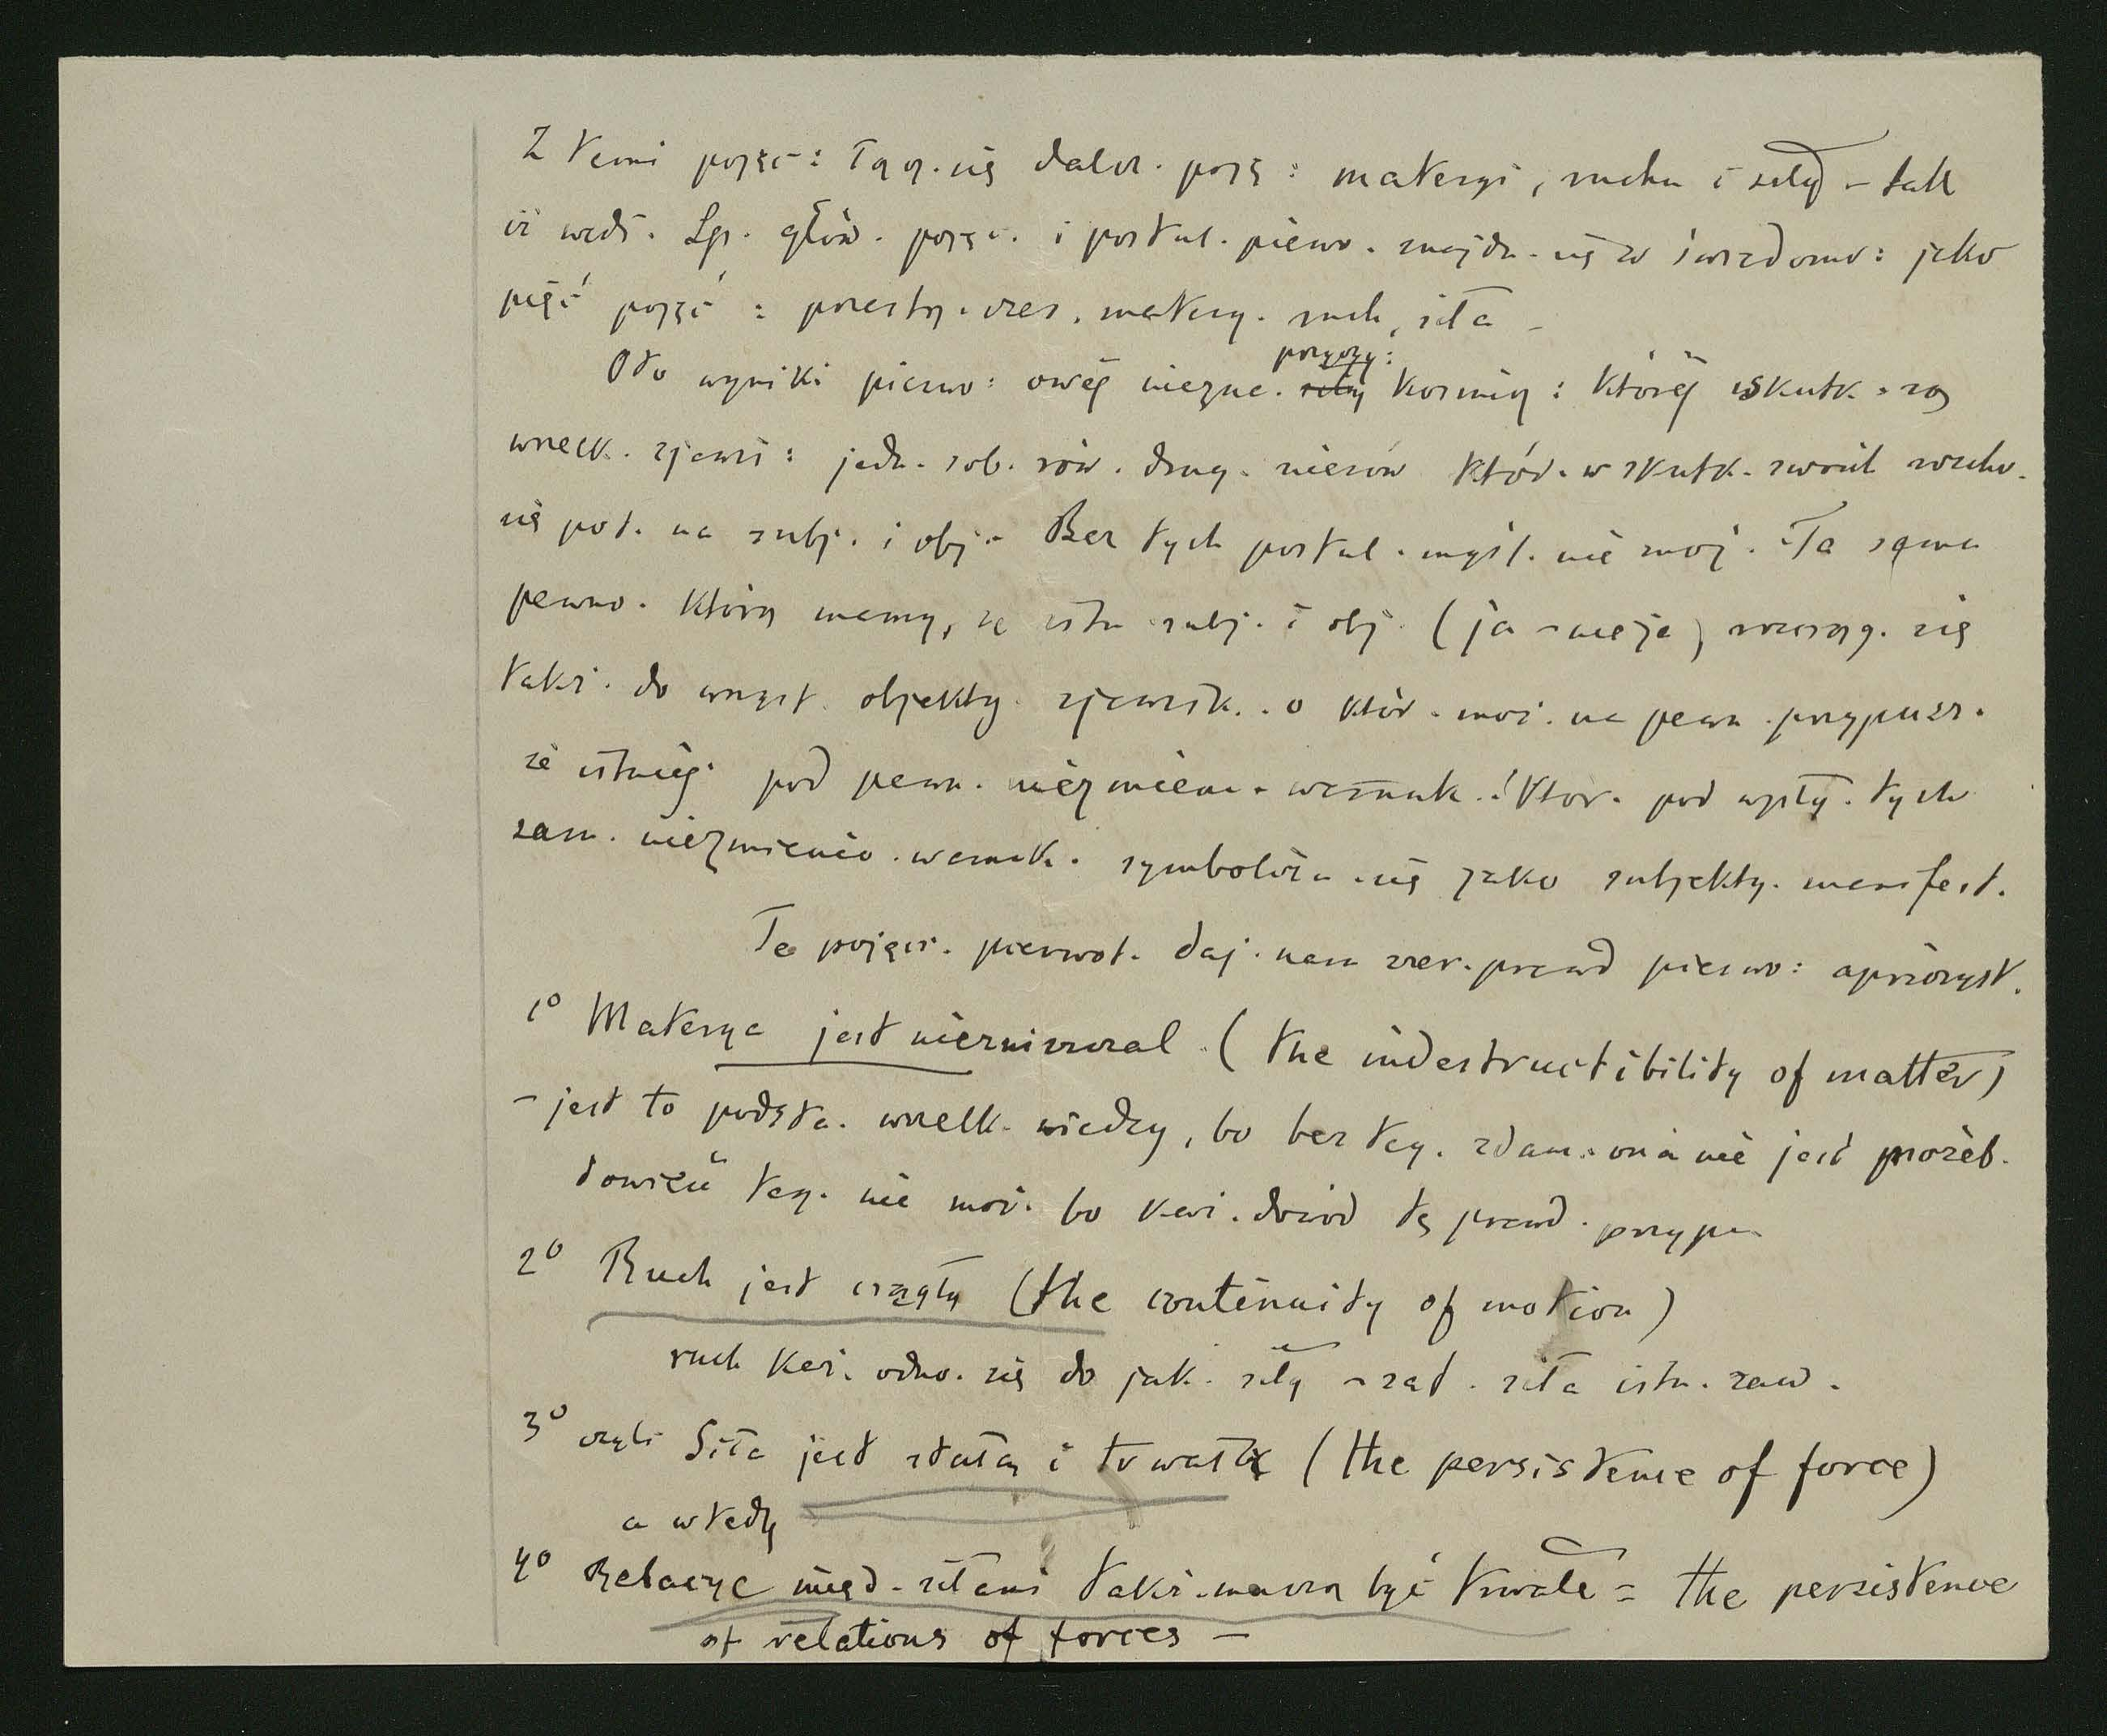 Z temi pojęc: łącz. się dalsz. poję: materyi, ruchu i siły – tak
iż wedł. Sp. głów. pojęc. i postul. pierw. znajdu. się w świadomo: jako
pięć pojęć : przestrz. czas, matery. ruch, siła –
Oto wyniki pierwo: owéj niezna. siły przyczy: kosmicz: któréj skutk. są
wszelk. zjawi: jedn. sob. rów. drug. nierów któr. w skutk. swoich
się pot. na subj. i obj. – Bez tych postul. myśl. nie moż. Ta sama
pewno. którą mamy, że istn subj. i obj. (ja – nieja) rozciąg. się
takż. do wszyst. objekty. zjawisk. o któr. moż. na pewn. przypusz.
że istnieją pod pewn. niezmienn. warunk. i któr. pod wpły. tych
sam. niezmienio. warunk. symbolizu. się jako subjekty. manifest.
Te pojęci. pierwot. daj. nam czter. prawd pierwo: aprioryst.
1º Materya jest niezniszczal. (the indestructibility of matter)
– jest to podsta. wszelk. wiedzy, bo bez teg. zdan. ona nie jest możeb.
dowieść teg. nie moż. bo każ. dowód tę prawd. przypu.
2º Ruch jest ciągły (the continuity of motion)
ruch każ. odno. się do jak. siły – zat. siła istn. zaw.
3º czyli Siła jest stałą i trwałą (the persistence of force)
a wtedy
4º Relacye międ. siłami takż. muszą być trwałe = the persistence
of relations of forces –